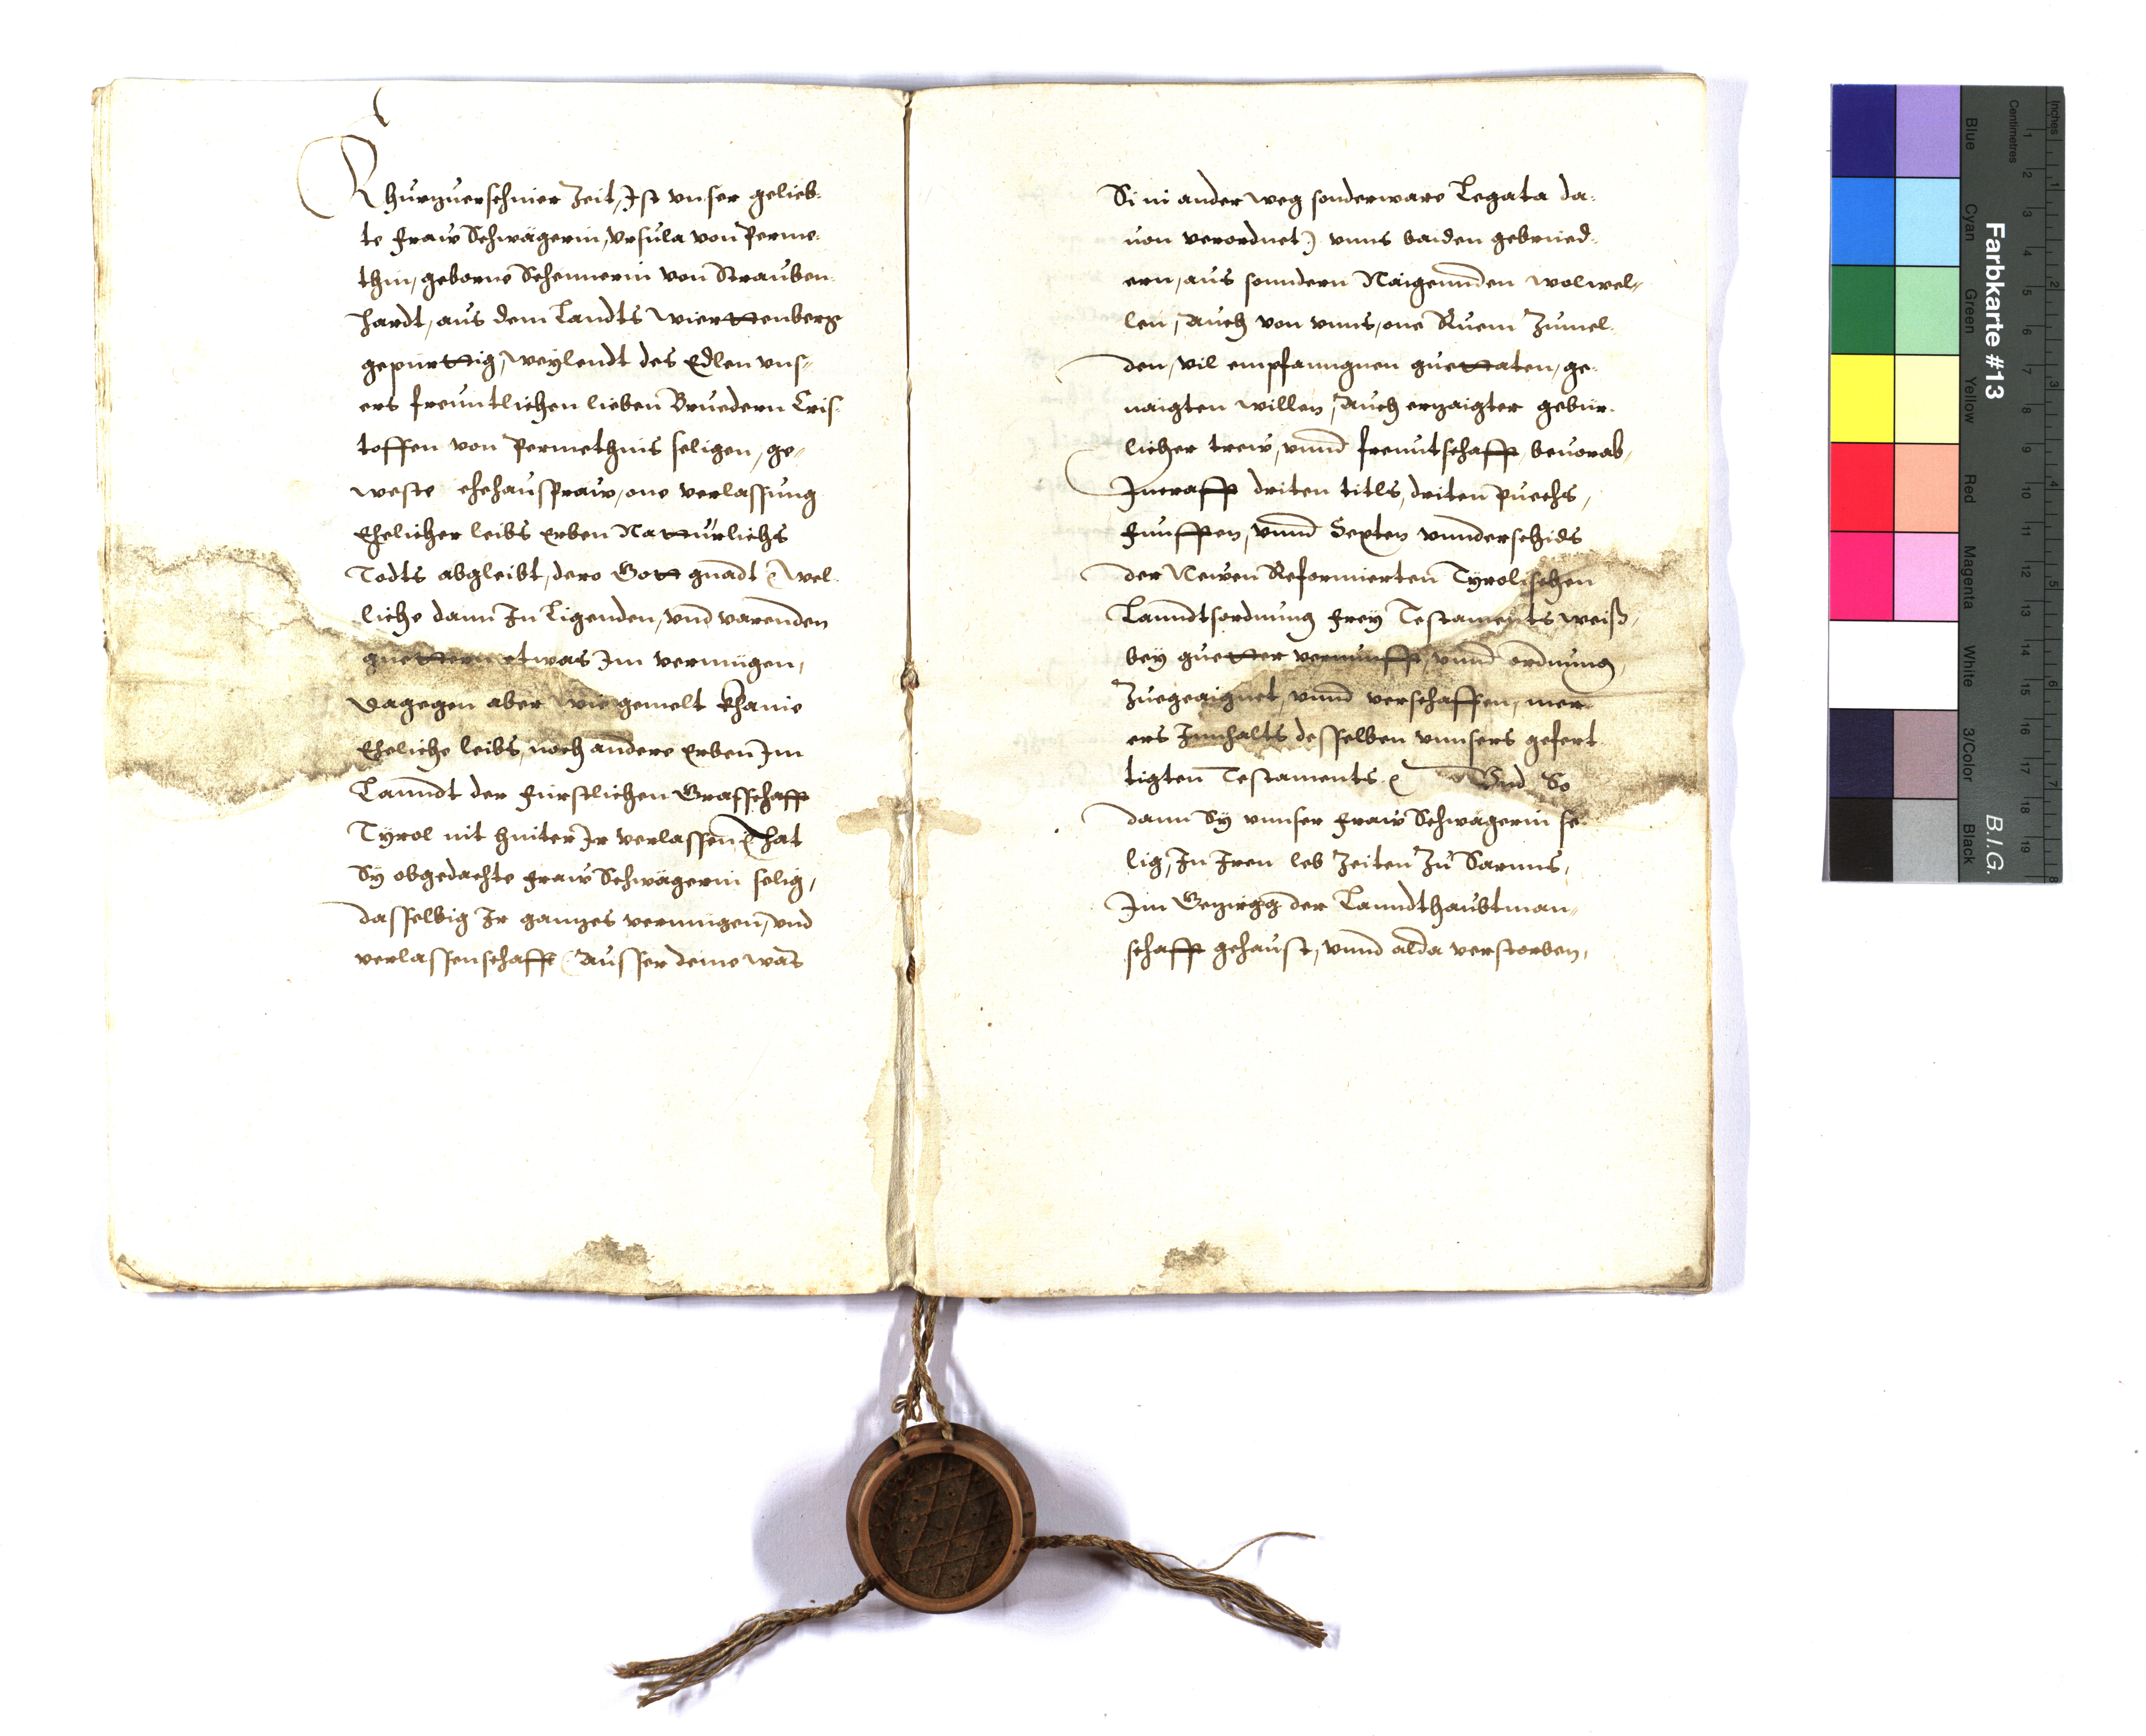 Khurzuerschiner Zeit, Ist vnser gelieb-
te Fraw Schwägerin, Vrsula von Perme-
thin, geborne Schennerin von Strauben-
hardt, aus dem Landts Wierttenberg
gepürttig, Weylendt des Edlen vns-
ers freuntlichen lieben Bruedern Cris-
toffen von Permethnis seligen, ge-
weste ehehausfraw, one verlassung
Ehelicher leibs Erben Nattürlichs
Todts abgleibt, dero Gott gnadt Wel-
liche dann In Ligenden, vnd varenden
guettern etwas Im vermügen,
Dagegen aber wie gemelt khanie
Eheliche leibs, noch andere Erben Im
Lanndt der Fürstlichen Graffschafft
Tyrol nit hinter Ir verlassen, hat
Sy obgedachte Fraw Schwägerin selig,
dasselbig Ir ganzes vermügen, vnd
verlassenschafft (Ausser deme was
Si in ander weg sonderware Legata da-
uon verordnet) vnns baiden gebrued-
ern, aus sonndern Naigennden wolwel-
len, Auch von vnns, one Ruem Zumel-
den, vil empfanngnen guettaten, ge-
naigten willen, Auch erzaigter gebür-
licher trew, vnnd freuntschafft, beuorab,
Incrafft driten titls, driten puechs,
Funfften, vnnd Sexten vnnderschids
der Newen Reformierten Tyrolischen
Lanndtsordnung frey Testaments weiß,
bey guetter vernunfft, vnnd ordnung,
Zuegeaignet, vnnd verschaffen, mer-
ers Innhalts desselben vnnsers gefert-
tigten Testaments. Vnd So
dann Sy vnnser Fraw Schwägerin se-
lig, In Iren leb Zeiten Zu Sarnns,
Im Gezirgg der Lanndthaubtman-
schafft gehaust, vnnd alda verstorben,
Farbkarte #13
B.I.G.
Inches
Centimetres
Blue
Cyan
Green
Yellow
Red
Magenta
White
3/Color
Black
1 2 3 4 5 6 7 8 9 10 11 12 13 14 15 16 17 18 19
1 2 3 4 5 6 7 8